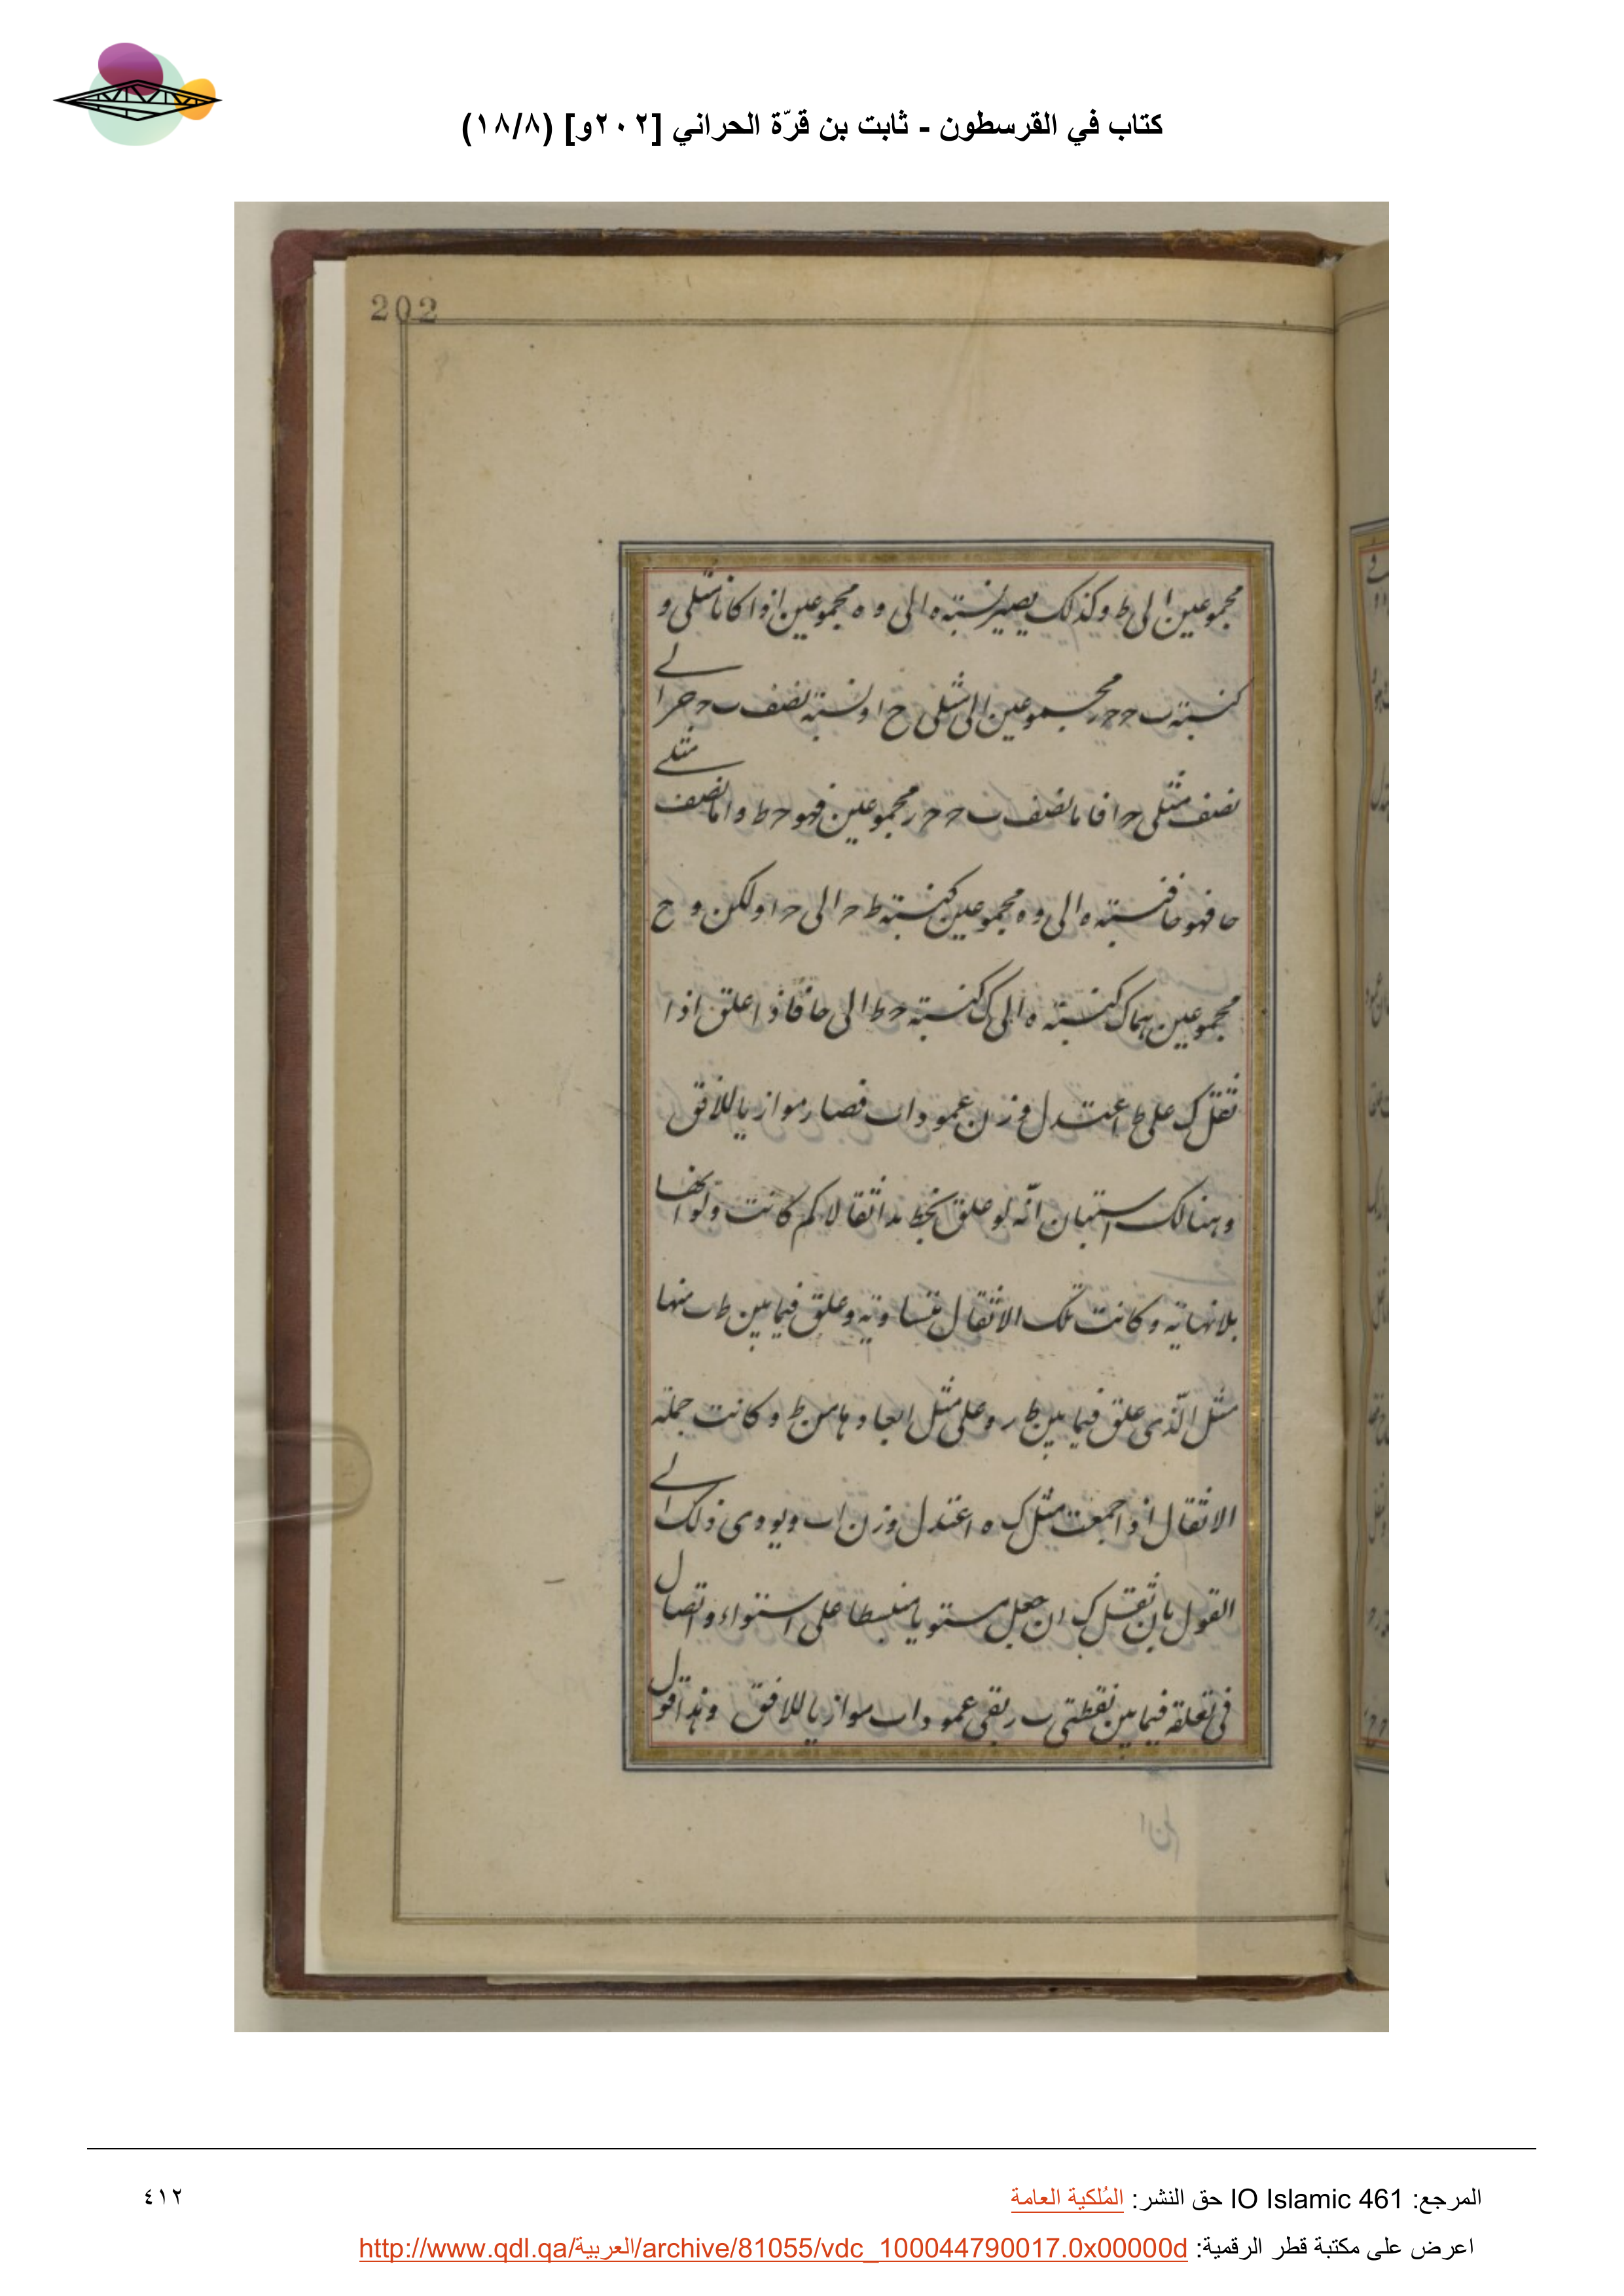 كتاب في القرسطون - ثابت بن قرّة الحراني [٢٠٢و] (١٨/٨)
202
مجموعين الى ط وكذلك يصير نسبة ه الى و ه مجموعين اذا كانا مثلى و
كنسبة ب ح ح ر مجموعين الى مثلى ح ا ونسبة نصف ب ح ح ر ا الى
نصف مثلى ح ا فاما نصف ب ح ح ر مجموعين فهو ح ط واما نصف مثلى
حا فهو حا فنسبة ه الى و ه مجموعين كنسبة ط ح الى ح ا ولكن و ح
مجموعين هما ك كنسبة ه الى ك كنسبة ح ط الى حا فاذا علق اذا
ثقل ك على ط اعتدل وزن عمود اب فصار موازيا للافق
وهنالك استبان انّه لو علق بخط بد اثقالا كم كانت ولو انها
بلانهاية وكانت تلك الاثقال متساوية وعلق فيما بين ط ب منها
مثل الّذى علق فيما بين ط ر وعلى مثل ابعادها من ط وكانت جملة
الاثقال اذا جمعت مثل ك ه اعتدل وزن اب ويودى ذلك الى
القول بان ثقل ك ان جعل مستويا منبسطا على استواء واتصال
فى تعلقه فيما بين نقطتى ب ر بقى عمود اب موازيا للافق وهذا قول
المرجع: IO Islamic 461 حق النشر: المُلكية العامة
٤١٢
اعرض على مكتبة قطر الرقمية: http://www.qdl.qa/العربية/archive/81055/vdc_100044790017.0x00000d